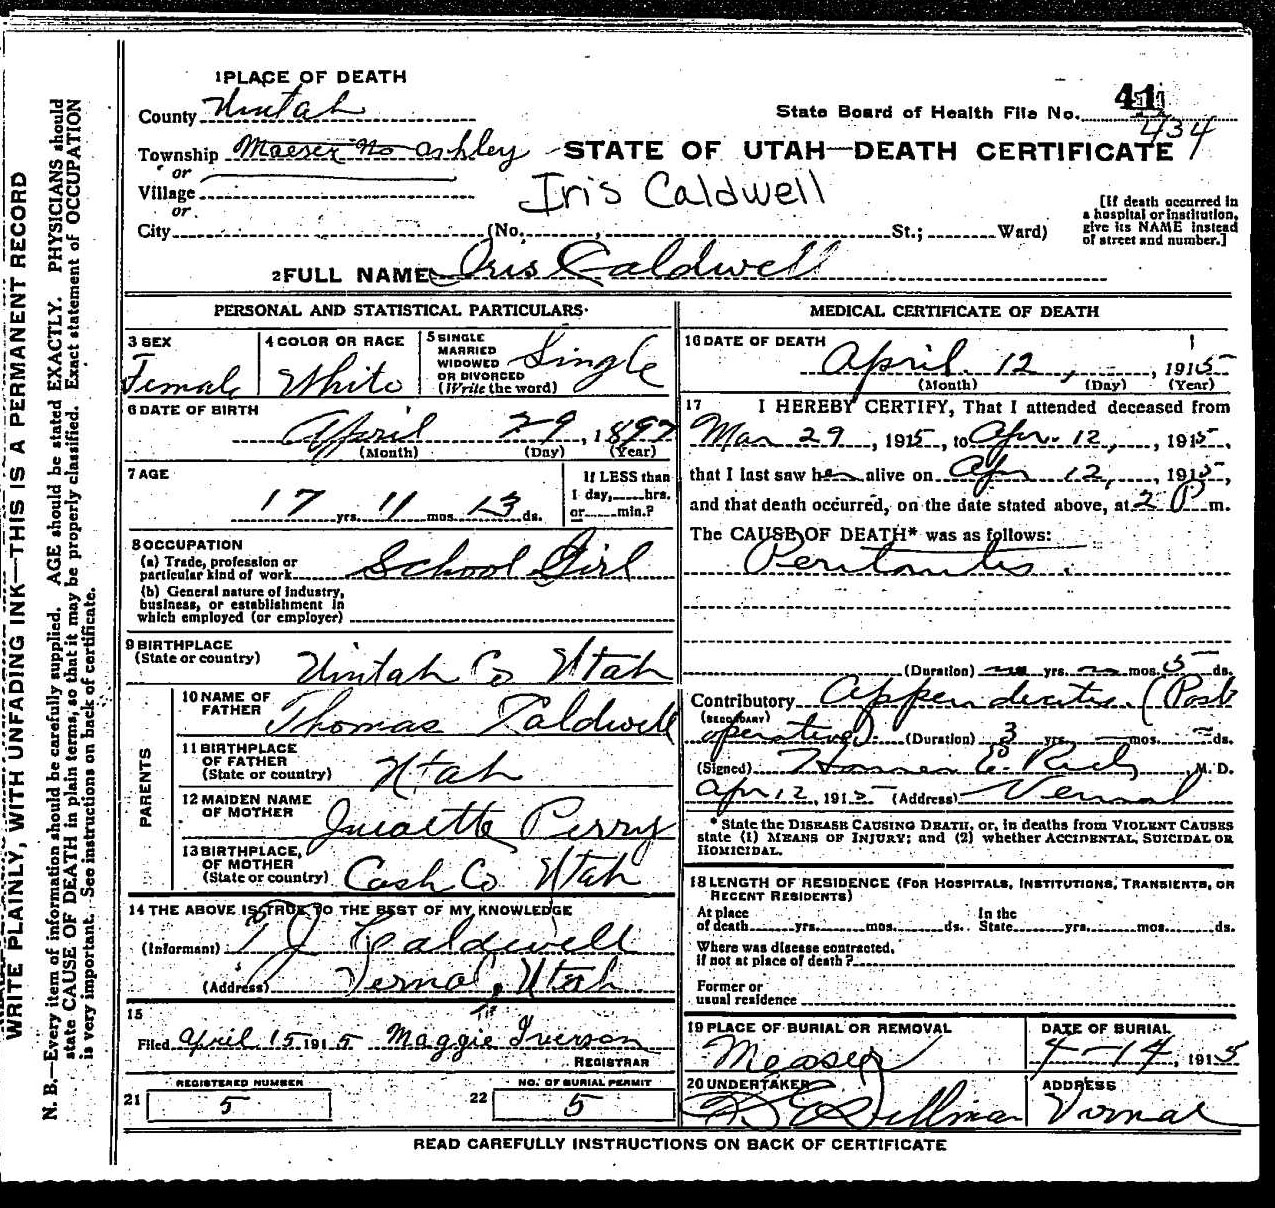 1 PLACE OF DEATH
County Uintah
State Board of Health File No. 41
434
Township Maeser No Ashley
STATE OF UTAH—DEATH CERTIFICATE
or
Village
Iris Caldwell
or
City (No. , St.; Ward)
[If death occurred in
a hospital or institution,
give its NAME instead
of street and number.]
2 FULL NAME Iris Caldwell
PERSONAL AND STATISTICAL PARTICULARS
3 SEX
Female
4 COLOR OR RACE
White
5 SINGLE
MARRIED
WIDOWED
OR DIVORCED
(Write the word)
Single
6 DATE OF BIRTH
April 29, 1897
(Month) (Day) (Year)
7 AGE
17 yrs. 11 mos. 13 ds.
If LESS than
1 day, hrs.
or min.?
8 OCCUPATION
(a) Trade, profession or
particular kind of work School Girl
(b) General nature of industry,
business, or establishment in
which employed (or employer)
9 BIRTHPLACE
(State or country) Uintah Co Utah
PARENTS
10 NAME OF
FATHER Thomas Caldwell
11 BIRTHPLACE
OF FATHER
(State or country) Utah
12 MAIDEN NAME
OF MOTHER Perry
13 BIRTHPLACE,
OF MOTHER
(State or country) Cash Co Utah
14 THE ABOVE IS TRUE TO THE BEST OF MY KNOWLEDGE
(Informant) T J Caldwell
(Address) Vernal, Utah
15
Filed April 15 1915 Maggie Iverson
REGISTRAR
REGISTERED NUMBER
21 5
NO. OF BURIAL PERMIT
22 5
MEDICAL CERTIFICATE OF DEATH
16 DATE OF DEATH
April. 12, , 1915
(Month) (Day) (Year)
17 I HEREBY CERTIFY, That I attended deceased from
Mar 29, 1915, to Apr. 12, , 1915,
that I last saw her alive on Apr 12, , 1915,
and that death occurred, on the date stated above, at 2 P m.
The CAUSE OF DEATH* was as follows:
Peritonitis.
(Duration) yrs. mos. 5 ds.
Contributory Appendicitis. (Post
(SECONDARY)
operative). (Duration) 3 yrs. mos. ds.
(Signed) Homer E. Rich, M. D.
Apr 12, 1915 (Address) Vernal
* State the DISEASE CAUSING DEATH, or, in deaths from VIOLENT CAUSES
state (1) MEANS OF INJURY; and (2) whether ACCIDENTAL, SUICIDAL OR
HOMICIDAL.
18 LENGTH OF RESIDENCE (FOR HOSPITALS, INSTITUTIONS, TRANSIENTS, OR
RECENT RESIDENTS)
At place
of death yrs. mos. ds.
In the
State yrs. mos. ds.
Where was disease contracted,
if not at place of death?
Former or
usual residence
19 PLACE OF BURIAL OR REMOVAL
Measer
DATE OF BURIAL
4-14, 1915
20 UNDERTAKER
Dillman
ADDRESS
Vernal
READ CAREFULLY INSTRUCTIONS ON BACK OF CERTIFICATE
WRITE PLAINLY, WITH UNFADING INK—THIS IS A PERMANENT RECORD
N. B.—Every item of information should be carefully supplied. AGE should be stated EXACTLY. PHYSICIANS should
state CAUSE OF DEATH in plain terms, so that it may be properly classified. Exact statement of OCCUPATION
is very important. See instructions on back of certificate.